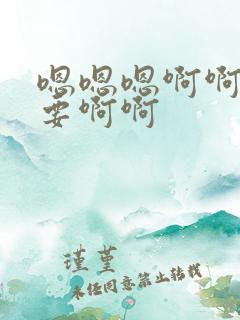 嗯嗯嗯啊啊
要啊啊
瑾堇
未经同意禁止转载